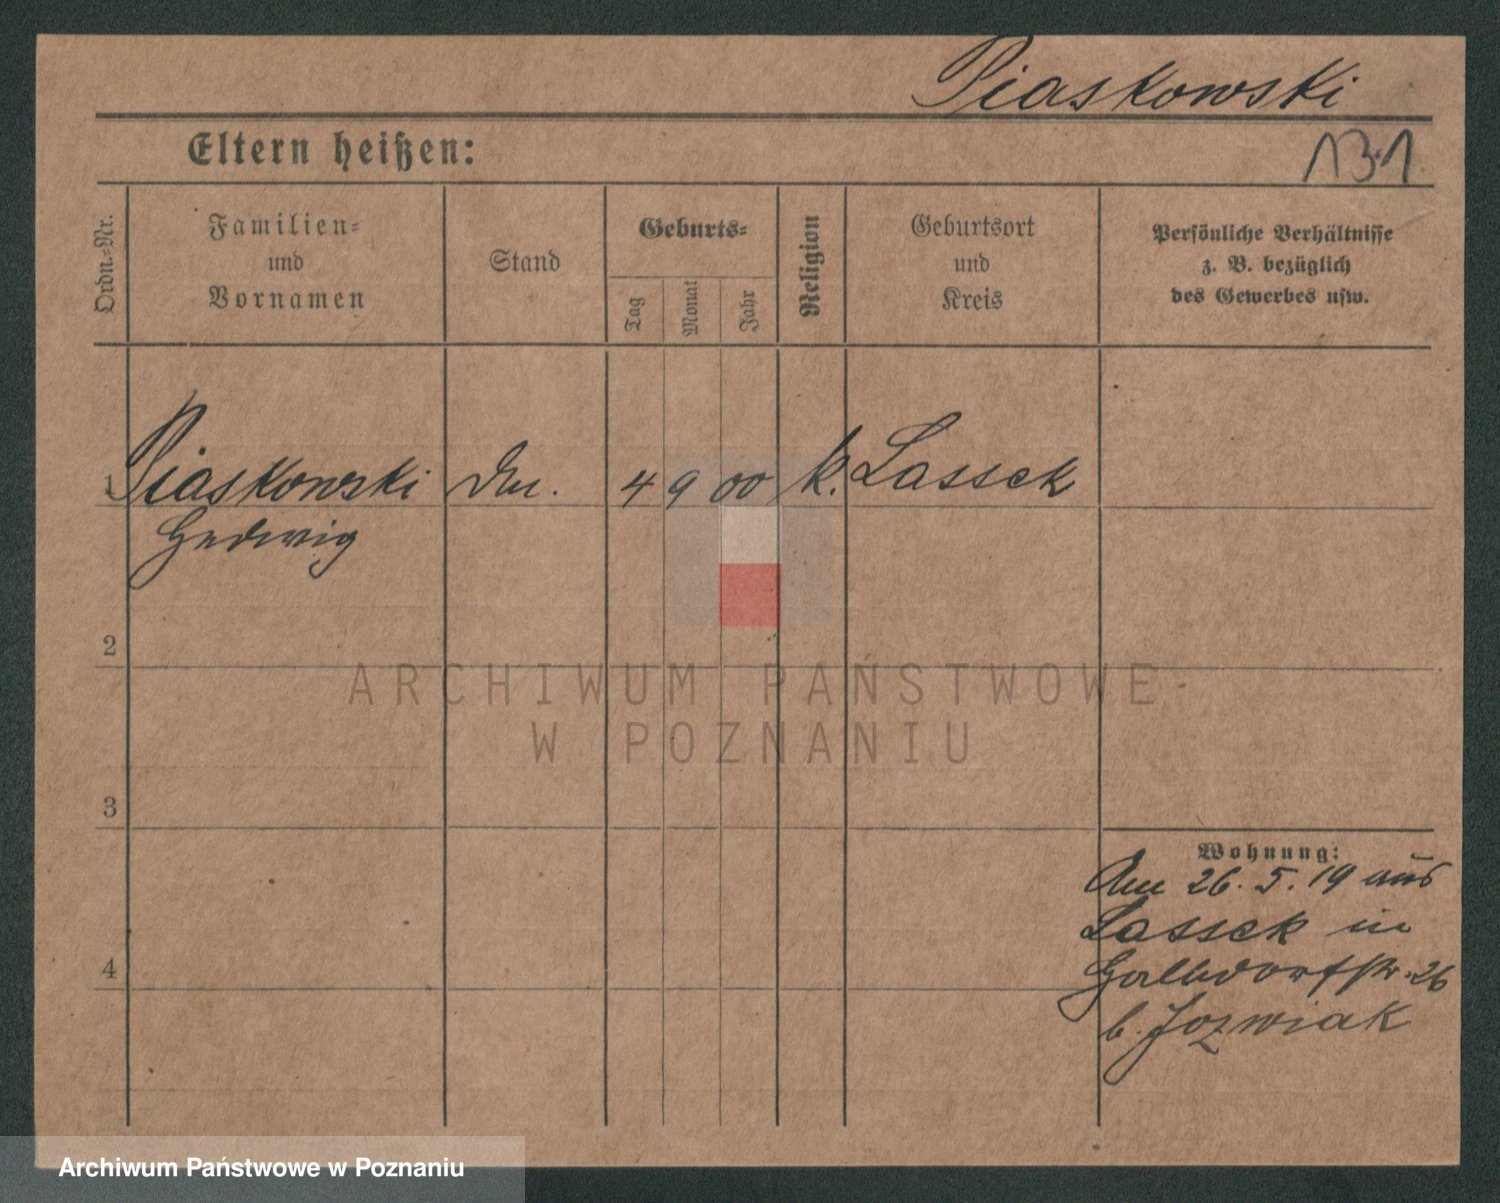 Piaskowski
Eltern heißen:
131
Ordn.-Nr.
Familien-
und
Vornamen
Stand
Geburts-
Tag
Monat
Jahr
Religion
Geburtsort
und
Kreis
Persönliche Verhältnisse
z. B. bezüglich
des Gewerbes usw.
1 Piaskowski 4 9 00 k. Lassek
Hedwig
2
ARCHIWUM PAŃSTWOWE
W POZNANIU
3
Wohnung:
Am 26. 5. 19 aus
Lassek in
26
4
b. Jozwiak
Archiwum Państwowe w Poznaniu